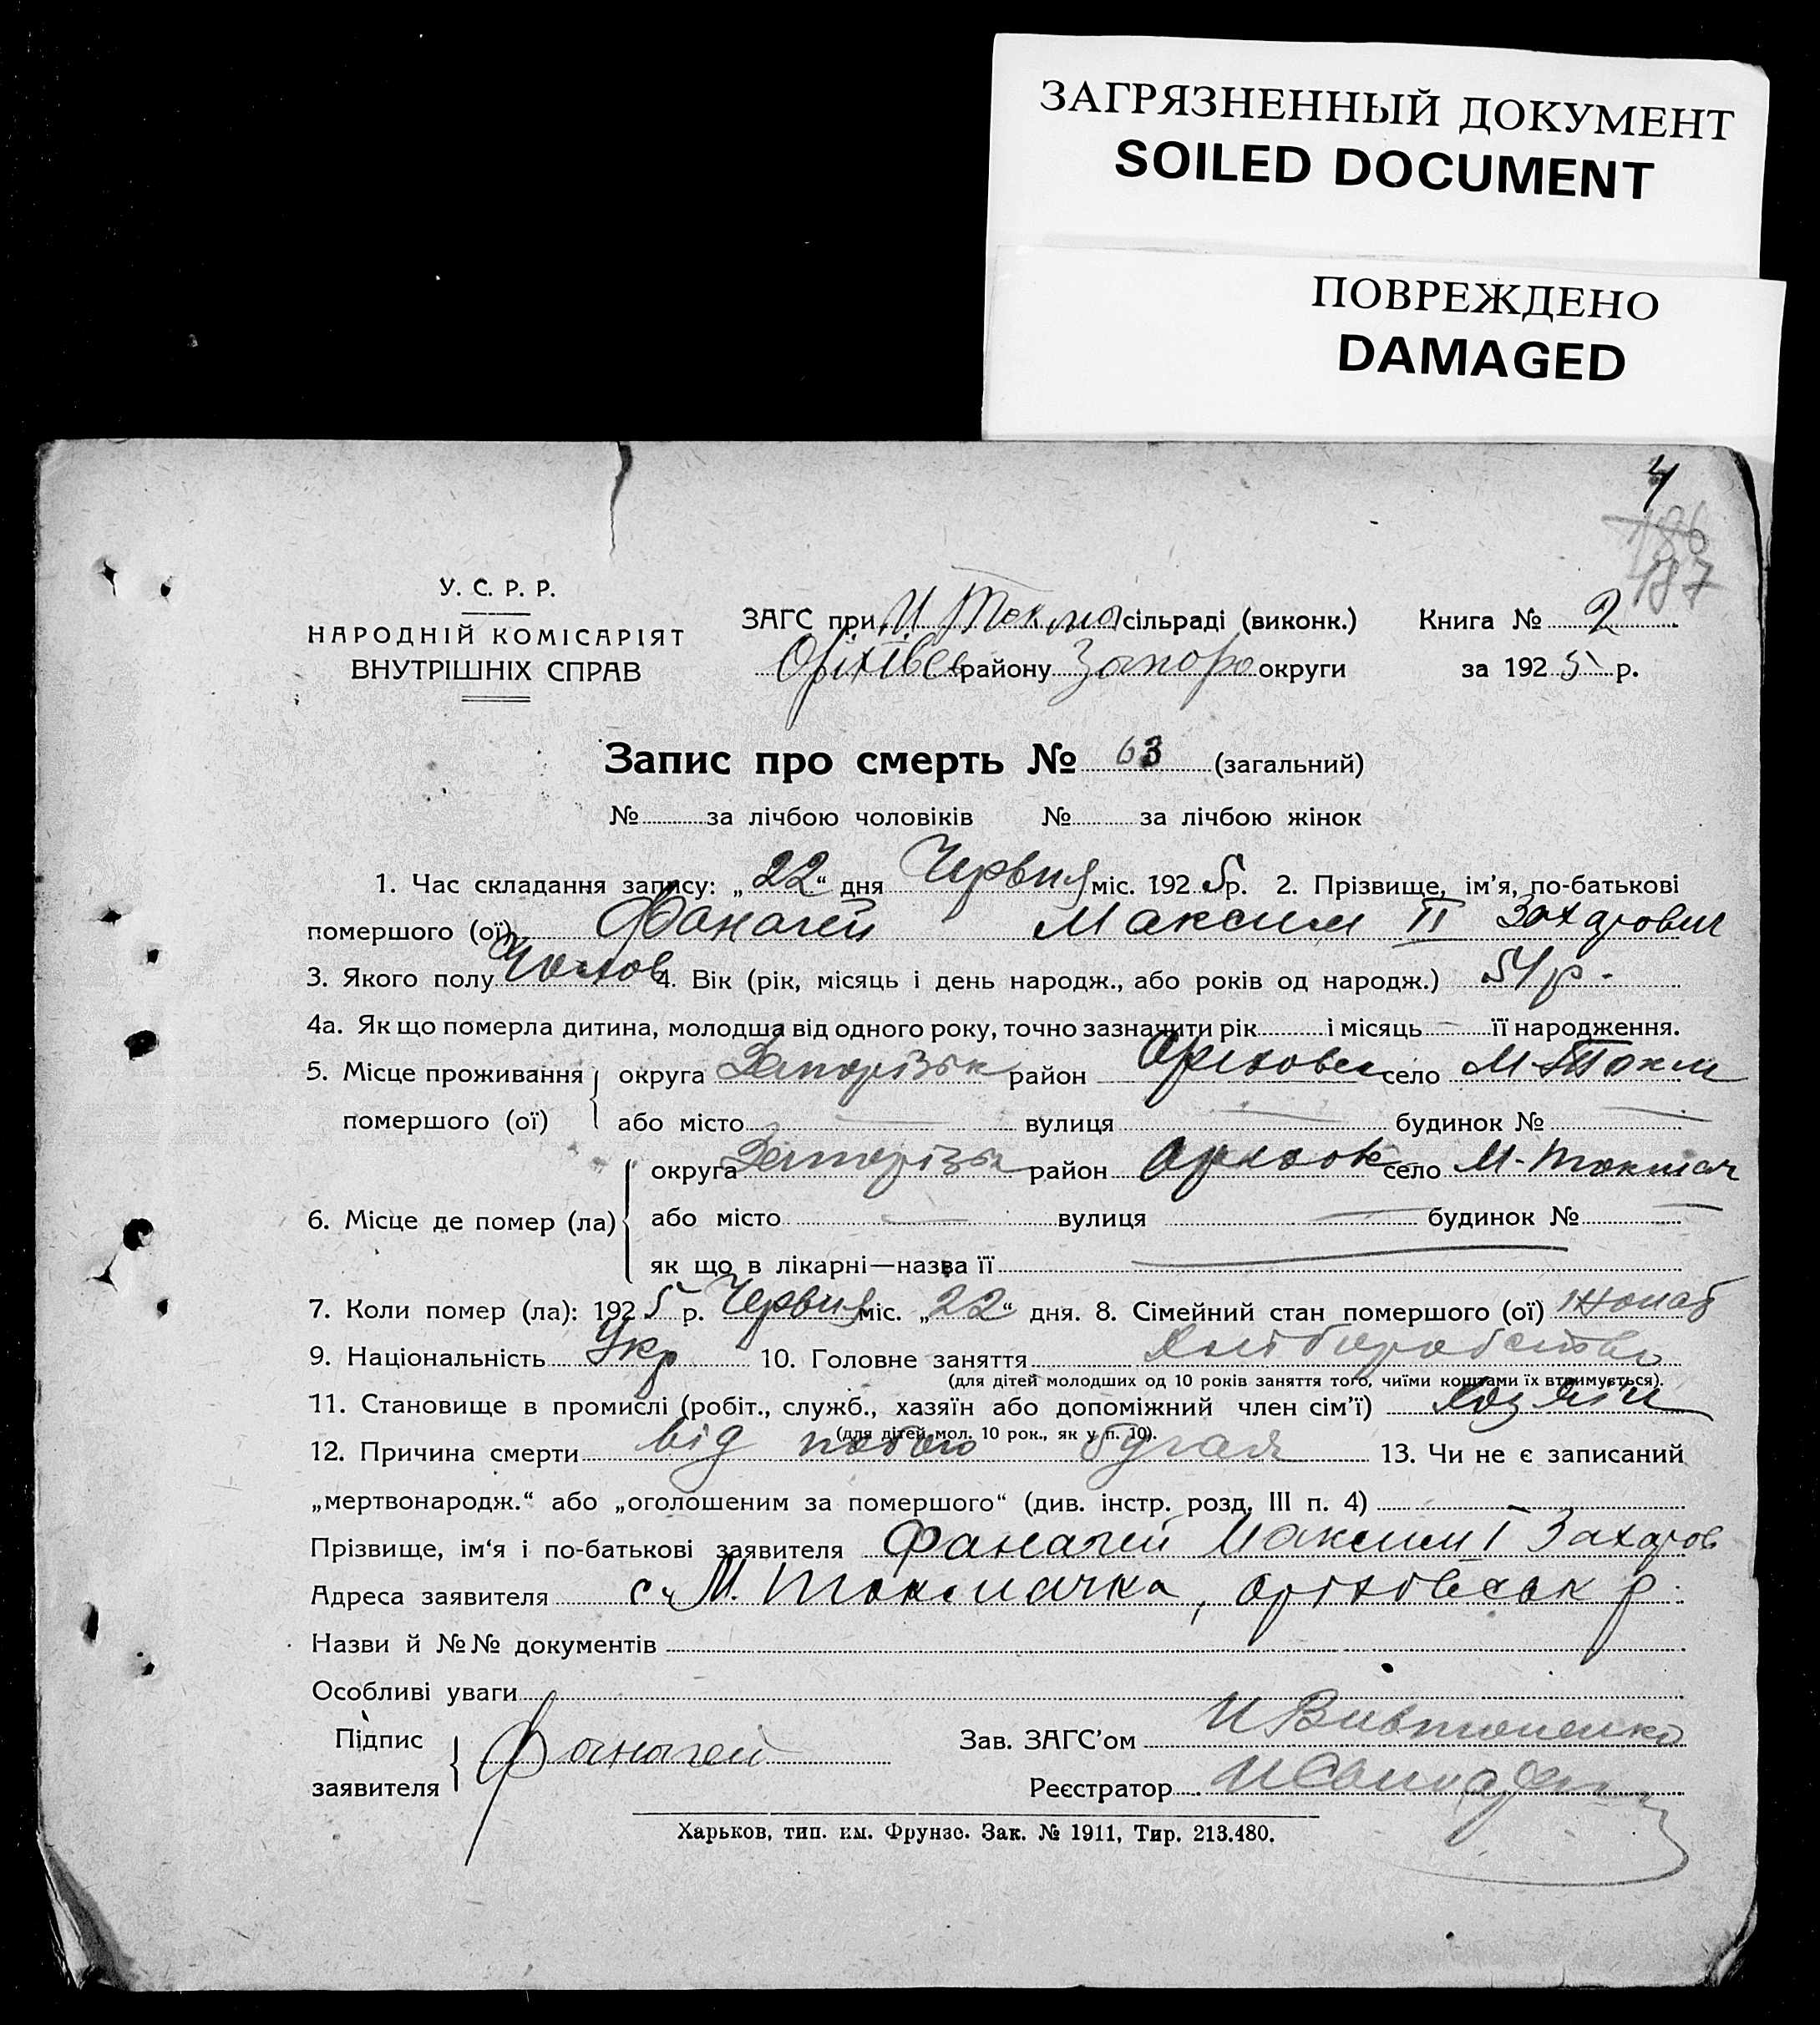 ЗАГРЯЗНЕННЫЙ ДОКУМЕНТ
SOILED DOCUMENT
ПОВРЕЖДЕНО
DAMAGED
4
186
187
У. С. Р. Р.
НАРОДНІЙ КОМІСАРІЯТ
ВНУТРІШНІХ СПРАВ
ЗАГС при М. Токма сільраді (виконк.) Книга № 2
Оріхівсь району Запоро округи за 1925 р.
Запис про смерть № 63 (загальний)
№ за лічбою чоловіків № за лічбою жінок
1. Час складання запису: „22“ дня Червня міс. 1925 р. 2. Прізвище, ім'я, по-батькові
помершого (ої) Фанагей Максим II Захарович
3. Якого полу Чолов 4. Вік (рік, місяць і день народж., або років од народж.) 54 р.
4а. Як що померла дитина, молодша від одного року, точно зазначити рік і місяць її народження.
5. Місце проживання помершого (ої) округа Запорізьк район Оріховськ село М-Токм
або місто — вулиця — будинок № —
6. Місце де помер (ла) округа Запорізьк район Оріхов село М-Токмач
або місто — вулиця — будинок № —
як що в лікарні—назва її —
7. Коли помер (ла): 1925 р. Червня міс. „22“ дня. 8. Сімейний стан помершого (ої) жонат
9. Національність Укр 10. Головне заняття Хліборобство
(для дітей молодших од 10 років заняття того, чиїми коштами їх втримується).
11. Становище в промислі (робіт., служб., хазяїн або допоміжний член сім'ї) Хозяїн
(для дітей мол. 10 рок., як у п. 10).
12. Причина смерти від побою бугая 13. Чи не є записаний
„мертвонародж.“ або „оголошеним за помершого“ (див. інстр. розд. III п. 4)
Прізвище, ім'я і по-батькові заявителя Фанагей Максим I Захаров
Адреса заявителя с. М. Токмачка, Оріхівськ р.
Назви й №№ документів
Особливі уваги
Підпис заявителя Фанагей
Зав. ЗАГС'ом
Реєстратор
Харьков, тип. им. Фрунзе. Зак. № 1911, Тир. 213.480.